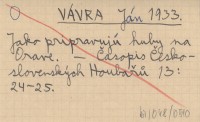 O VÁVRA Ján 1933.
Jako pripravujú huby na
Orave. — Časopis Česko-
slovenských Houbařů 13:
24-25.